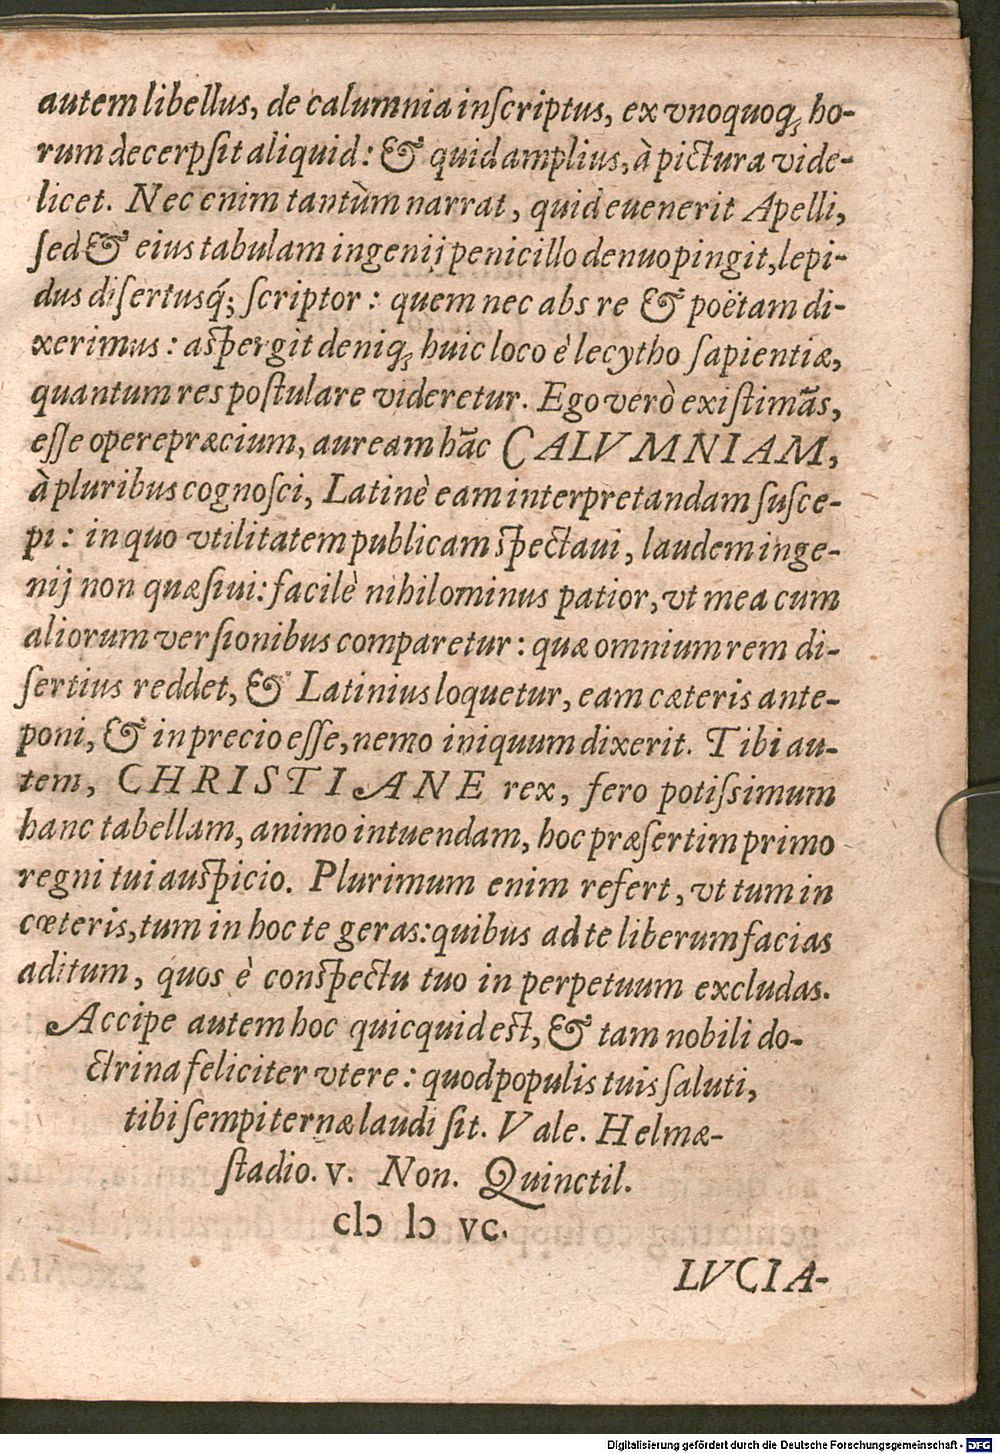 autem libellus, de calumnia inſcriptus, ex vnoquoq; ho-
rum decerpſit aliquid: & quid amplius, à pictura vide-
licet. Nec enim tantùm narrat, quid euenerit Apelli,
ſed & eius tabulam ingenij penicillo denuo pingit, lepi-
dus diſertusq́; ſcriptor: quem nec abs re & poëtam di-
xerimus: aſpergit deniq; huic loco è lecytho ſapientiæ,
quantum res poſtulare videretur. Ego verò exiſtimãs,
eſſe operepræcium, auream hãc CALVMNIAM,
à pluribus cognoſci, Latinè eam interpretandam ſuſce-
pi: in quo vtilitatem publicam ſpectaui, laudem inge-
nij non quæſiui: facilè nihilominus patior, vt mea cum
aliorum verſionibus comparetur: quæ omnium rem di-
ſertius reddet, & Latinius loquetur, eam cæteris ante-
poni, & in precio eſſe, nemo iniquum dixerit. Tibi au-
tem, CHRISTIANE rex, fero potiſsimum
hanc tabellam, animo intuendam, hoc præſertim primo
regni tui auſpicio. Plurimum enim refert, vt tum in
cæteris, tum in hoc te geras: quibus ad te liberum facias
aditum, quos è conſpectu tuo in perpetuum excludas.
Accipe autem hoc quicquid eſt, & tam nobili do-
ctrina feliciter vtere: quod populis tuis ſaluti,
tibi ſempiternæ laudi ſit. Vale. Helmæ-
ſtadio. v. Non. Quinctil.
cIↄ Iↄ vc.
LVCIA-
Digitalisierung gefördert durch die Deutsche Forschungsgemeinschaft - DFG